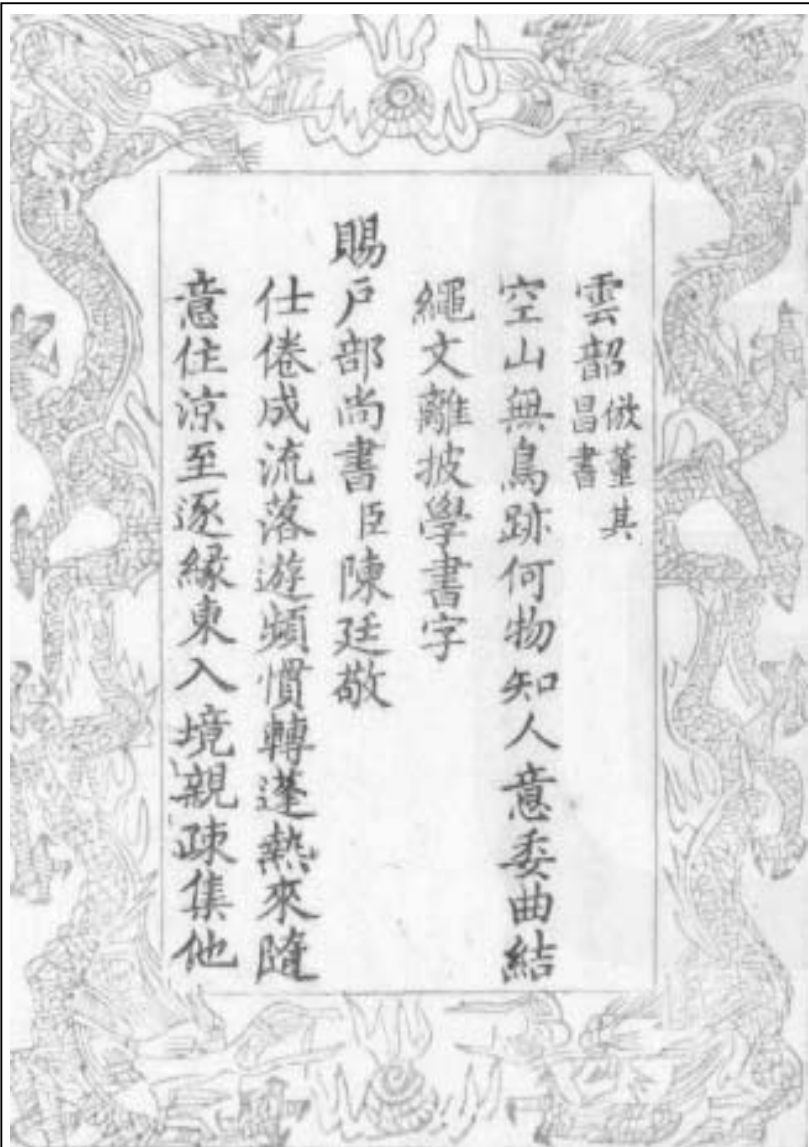 雲韶倣董其
昌書
空山無鳥跡何物知人意委曲結
繩文離披學書字
賜戶部尚書臣陳廷敬
仕倦成流落遊頻慣轉蓬熱來隨
意住涼至逐緣東入境親疎集他